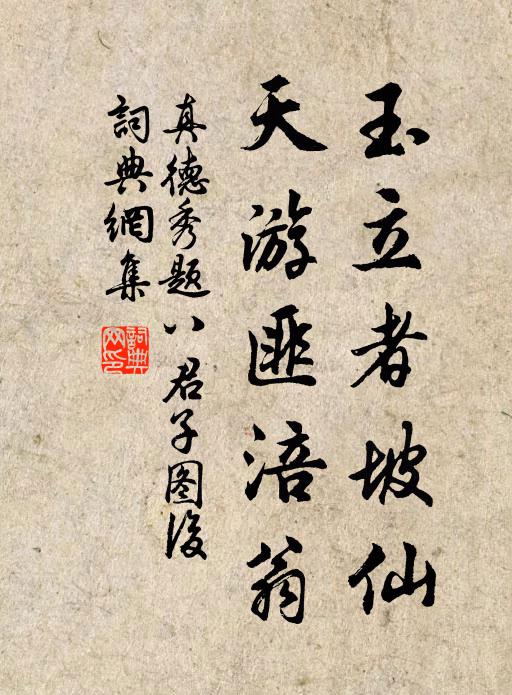 玉立者坡仙
天游匪涪翁
真德秀题八君子图後
詞典網集
詞典网印